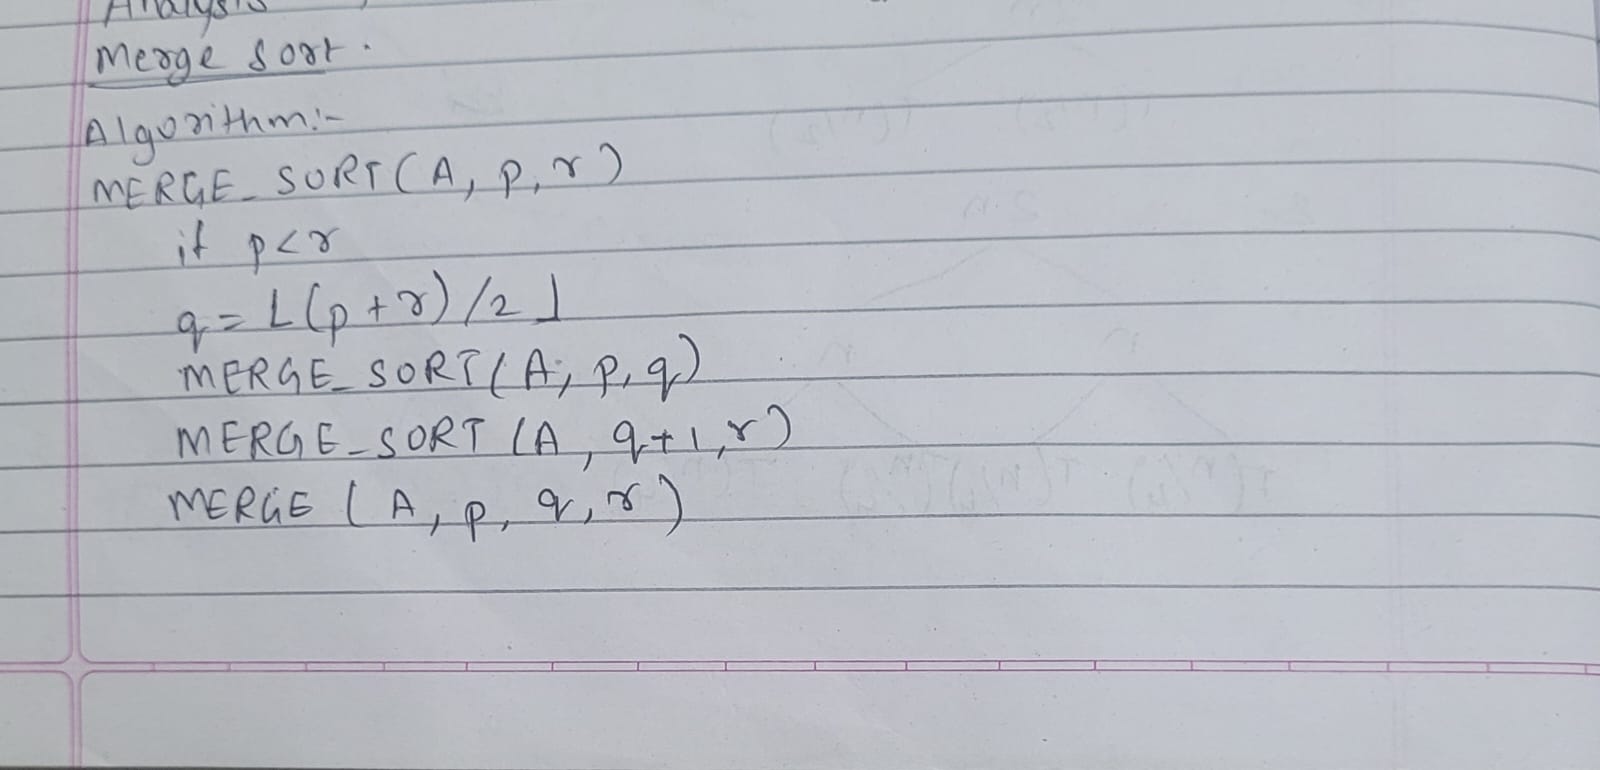 Analysis
Merge sort.
Algorithm:-
MERGE_SORT(A, p, r)
if p<r
q=⌊(p+r)/2⌋
MERGE_SORT(A, p, q)
MERGE_SORT(A, q+1, r)
MERGE(A, p, q, r)